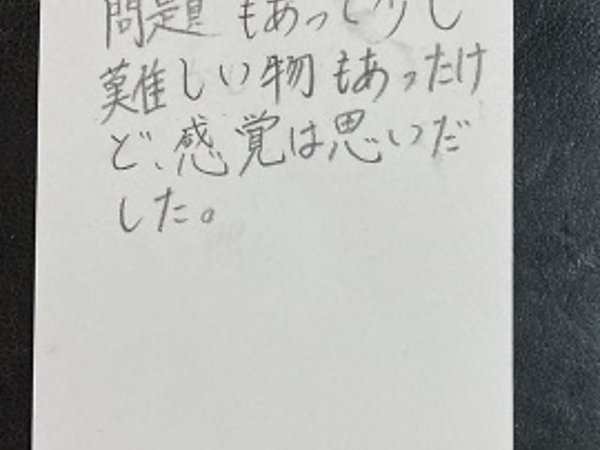 問題もあって少し
難しい物もあったけ
ど、感覚は思いだ
した。